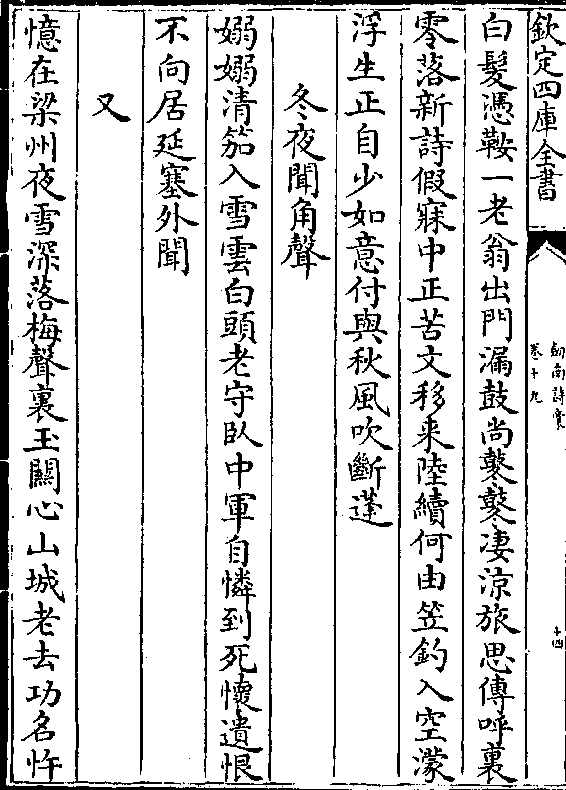 欽定四庫全書
劒南詩槀
卷十九
十四
白髮憑鞍一老翁出門漏鼓尚鼕鼕凄涼旅思傳呼裏
零落新詩假寐中正苦文移来陸續何由笠釣入空濛
浮生正自少如意付與秋風吹斷蓬
冬夜聞角聲
嫋嫋清笳入雪雲白頭老守卧中軍自憐到死懷遺恨
不向居延塞外聞
又
憶在梁州夜雪深落梅聲裏玉闗心山城老去功名忤